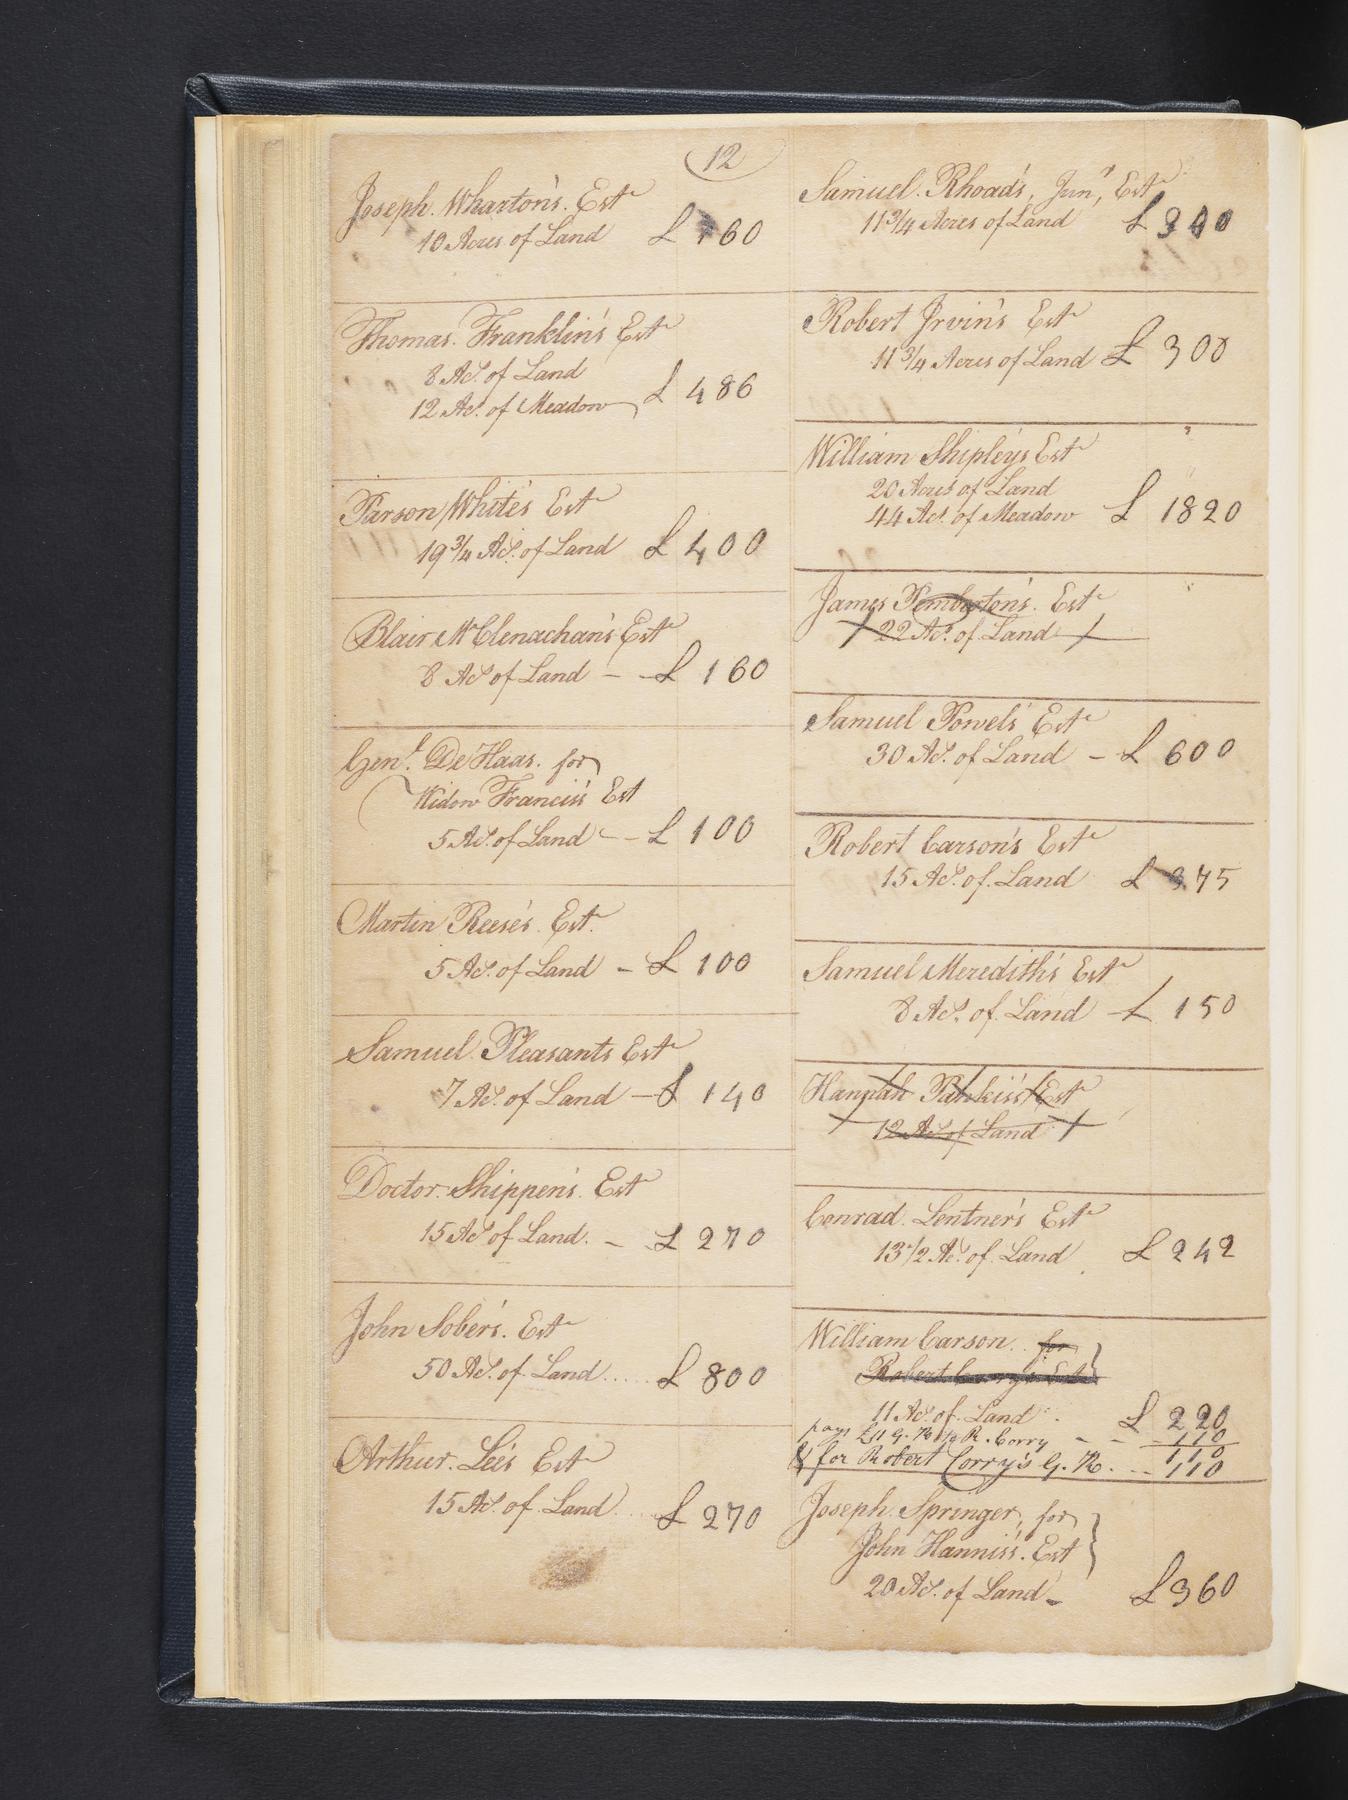 12
Joseph. Wharton's. Est
10 Acres of Land £ 160
Thomas. Franklin's Est
8 Acs. of Land
12 Acs. of Meadow £ 486
Parson White's Est
19 3/4 Acs. of Land £ 400
Blair McClenachan's Est
8 Acs of Land - £ 160
Genl. De Haas. for
Widow Francis's Est
5 Acs. of Land - £ 100
Martin Reese's. Est.
5 Acs. of Land - £ 100
Samuel Pleasants Est
7 Acs. of Land - £ 140
Doctor. Shippen's. Est
15 Acs of Land. - £ 270
John Sober's. Est
50 Acs. of Land.... £ 800
Arthur. Lee's Est
15 Acs. of Land.... £ 270
Samuel. Rhoad's, Junr, Est
11 3/4 Acres of Land £ 340
Robert Irvin's Est
11 3/4 Acres of Land £ 300
William Shipley's Est
20 Acres of Land
44 Acs. of Meadow £ 1820
James Pemberton's. Est
22 Acs. of Land
Samuel Powel's Est
30 Acs. of Land - £ 600
Robert Carson's Est
15 Acs. of. Land £ 375
Samuel Meredith's Est
8 Acs. of. Land £ 150
Hannah Est
12 Acs. of Land
Conrad. Lentner's Est
13 1/2 Acs. of. Land £ 242
William Carson.. for
Robert Corry's Est
11 Acs. of. Land. £ 220
pays £11 G. R. R. Corry - - 110
110
& for Robert Corry's G. R. ... 110
Joseph. Springer, for
John Hannis's. Est
20 Acs. of Land - £ 360